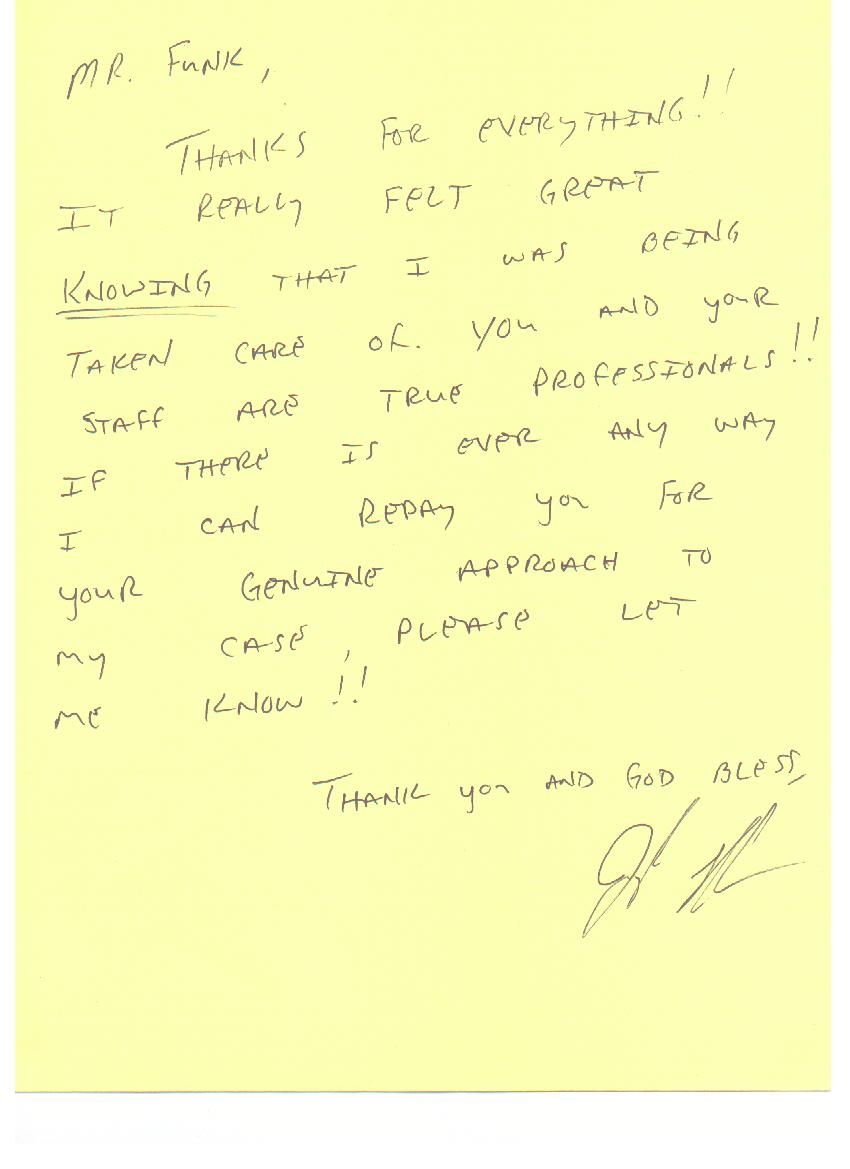 MR. FUNK,
THANKS FOR EVERYTHING!!
IT REALLY FELT GREAT
KNOWING THAT I WAS BEING
TAKEN CARE OF. YOU AND YOUR
STAFF ARE TRUE PROFESSIONALS!!
IF THERE IS EVER ANY WAY
I CAN REPAY YOU FOR
YOUR GENUINE APPROACH TO
MY CASE, PLEASE LET
ME KNOW!!
THANK YOU AND GOD BLESS,